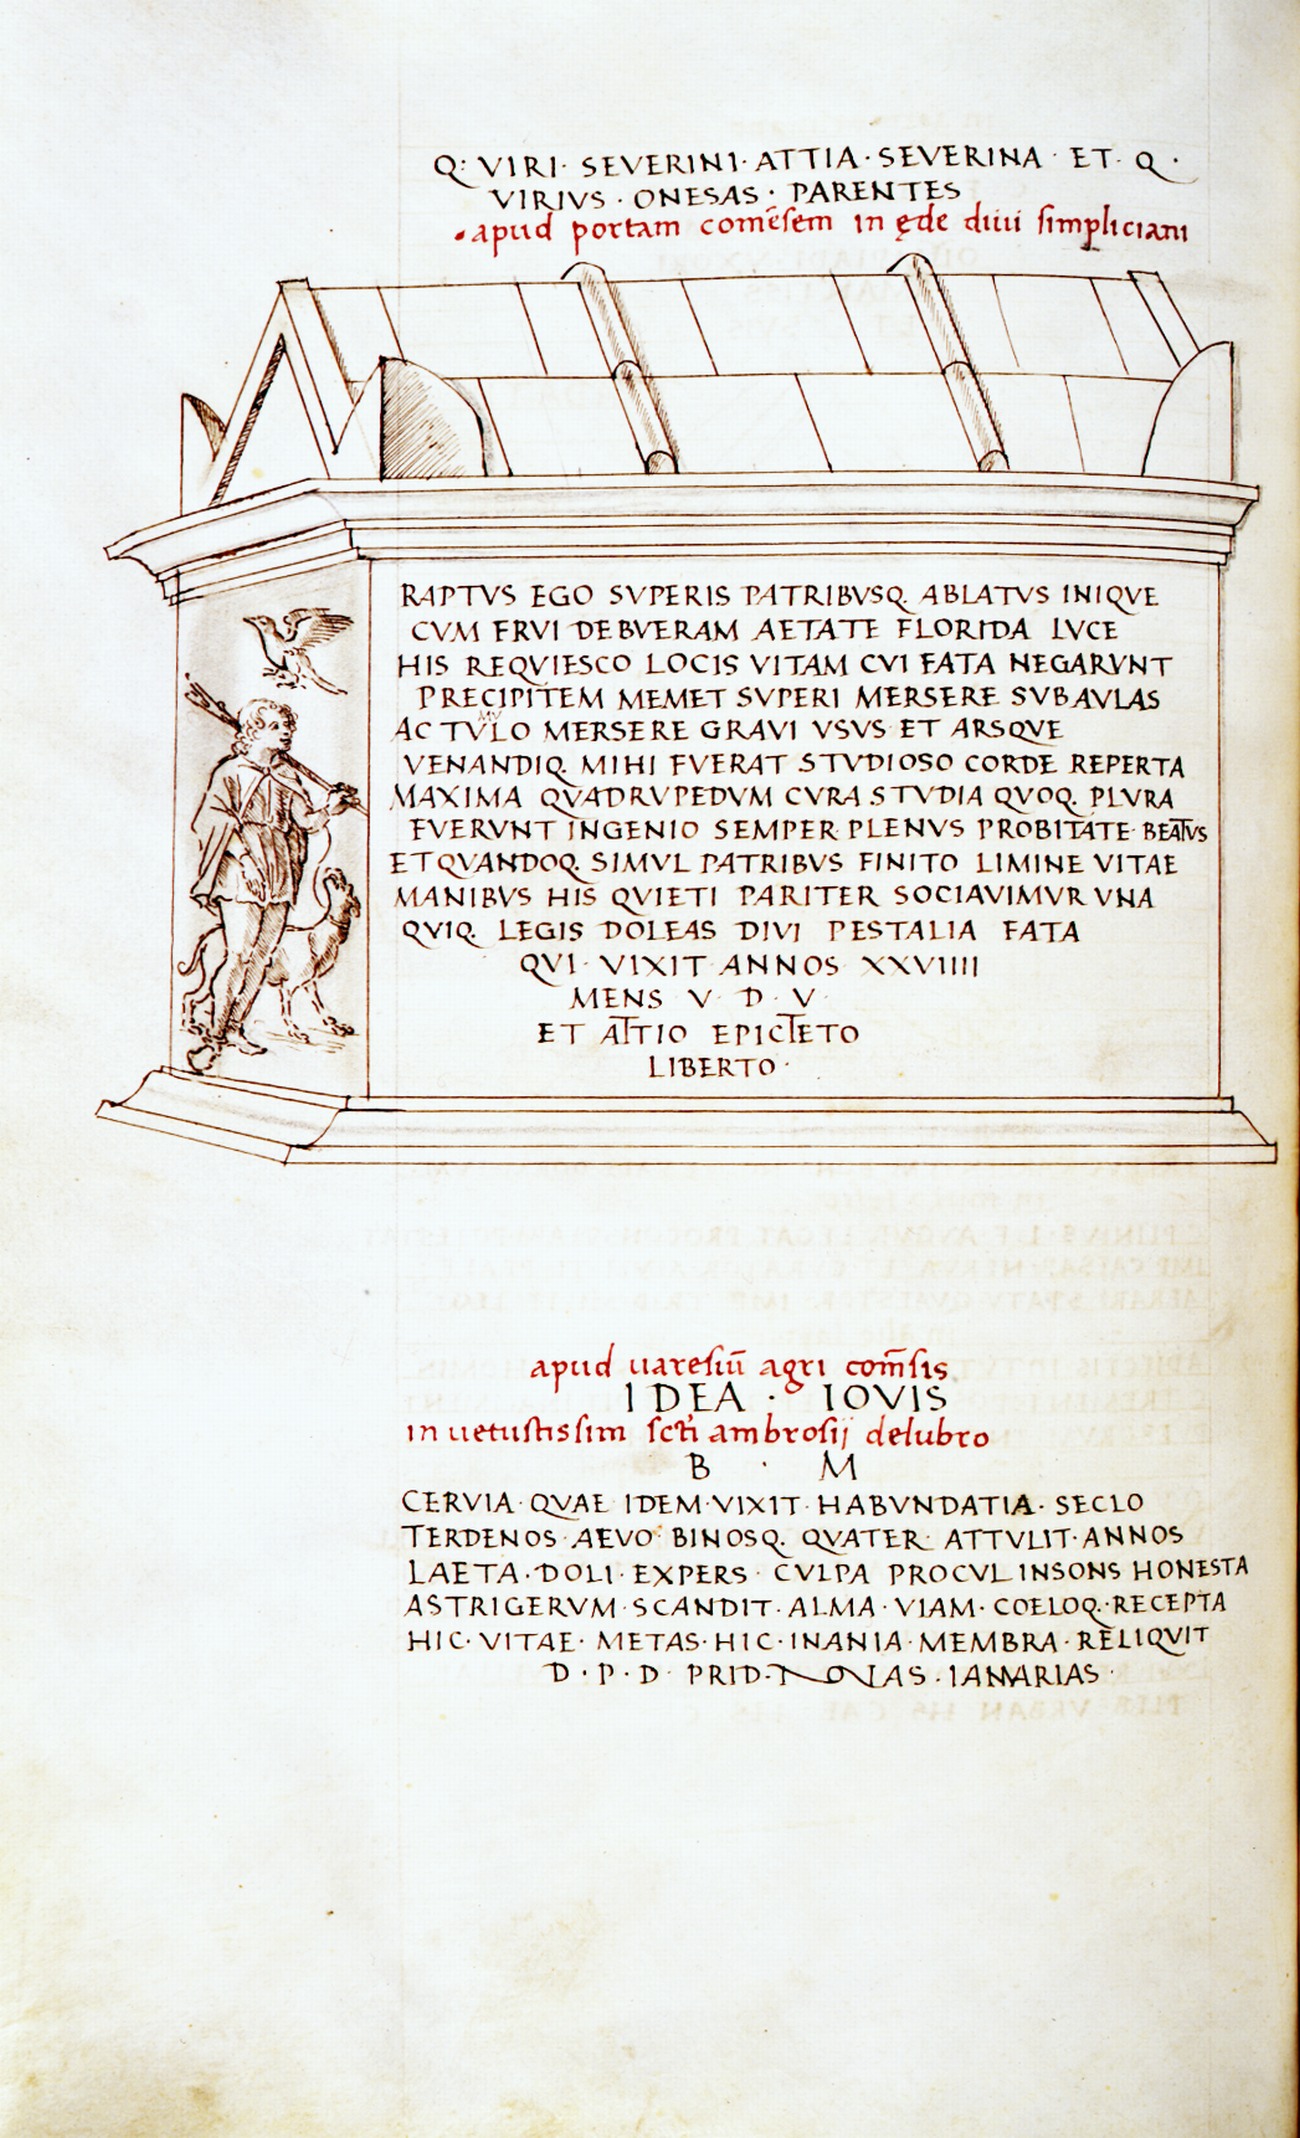 Q: VIRI· SEVERINI· ATTIA · SEVERINA · ET · Q ·
VIRIVS · ONESAS · PARENTES
apud portam comēsem in ęde diui simpliciani
RAPTVS EGO SVPERIS PATRIBVSQ. ABLATVS INIQVE
CVM FRVI DEBVERAM AETATE FLORIDA LVCE
HIS REQVIESCO LOCIS VITAM CVI FATA NEGARVNT
PRECIPITEM MEMET SVPERI MERSERE SVBAVLAS
MV
AC TVLO MERSERE GRAVI VSVS ET ARSQVE
VENANDIQ. MIHI FVERAT STVDIOSO CORDE REPERTA
MAXIMA QVADRVPEDVM CVRA STVDIA QVOQ. PLVRA
FVERVNT INGENIO SEMPER PLENVS PROBITATE BEATVS
ET QVANDOQ. SIMVL PATRIBVS FINITO LIMINE VITAE
MANIBVS HIS QVIETI PARITER SOCIAVIMVR VNA
QVIQ. LEGIS DOLEAS DIVI PESTALIA FATA
QVI · VIXIT ANNOS XXVIIII
MENS V · D · V ·
ET ATTIO EPICTETO
LIBERTO ·
apud uaresiū agri com̄sis
IDEA · IOVIS
in uetustissim scti ambrosij delubro
B · M
CERVIA · QVAE IDEM · VIXIT · HABVNDATIA · SECLO
TERDENOS · AEVO BINOSQ. QVATER · ATTVLIT · ANNOS
LAETA · DOLI · EXPERS · CVLPA PROCVL INSONS HONESTA
ASTRIGERVM · SCANDIT · ALMA · VIAM · COELOQ. · RECEPTA
HIC · VITAE · METAS · HIC · INANIA · MEMBRA · RELIQVIT
D · P · D PRID · NONAS · IANVARIAS ·